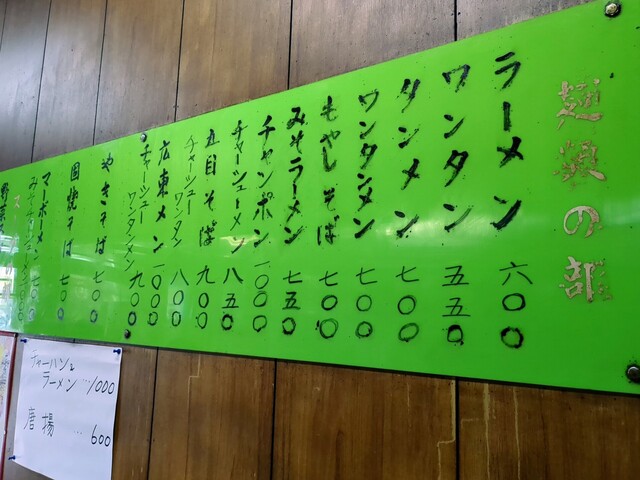 麺類の部
ラーメン 六〇〇
ワンタン 五五〇
タンメン 七〇〇
ワンタンメン 七〇〇
もやしそば 七〇〇
みそラーメン 七五〇
チャンポン 一〇〇〇
チャーシューメン 八五〇
五目そば 九〇〇
チャーシューワンタン 八〇〇
広東メン 一〇〇〇
チャーシューワンタンメン 九〇〇
やきそば 七〇〇
固焼そば 七〇〇
マーボーメン
チャーハンと
ラーメン…1000
唐揚…600